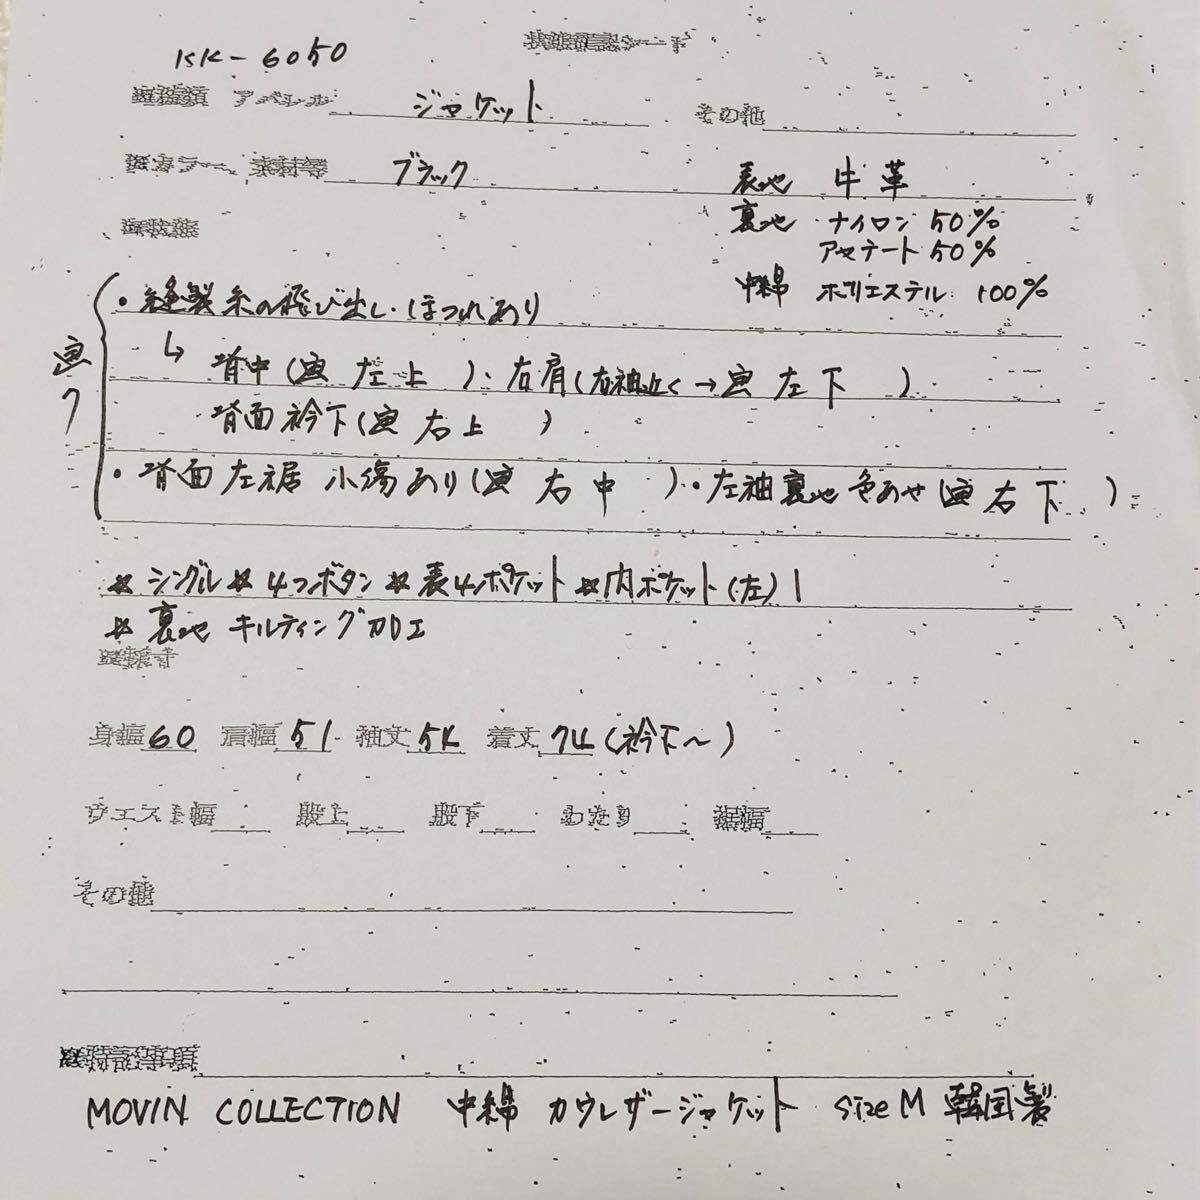 KK-6050
アパレル ジャケット その他
カラー・素材等 ブラック 表地 牛革
裏地 ナイロン 50%
アセテート 50%
中綿 ポリエステル 100%
・縫製糸の飛び出し・ほつれあり
画7
↳ 背中(画 左上 )・右肩(右袖近く→画 左下 )
背面衿下(画 右上 )
・背面左裾 小傷あり(画 右中 )・左袖裏地色あせ(画 右下 )
☆シングル☆4つボタン☆表4ポケット☆内ポケット(左)1
☆裏地 キルティング加工
身幅 60 肩幅 51 袖丈 54 着丈 74 (衿下〜)
ウエスト幅 股上 股下 わたり 裾幅
その他
※特記事項
MOVIN COLLECTION 中綿 カウレザージャケット size M 韓国製